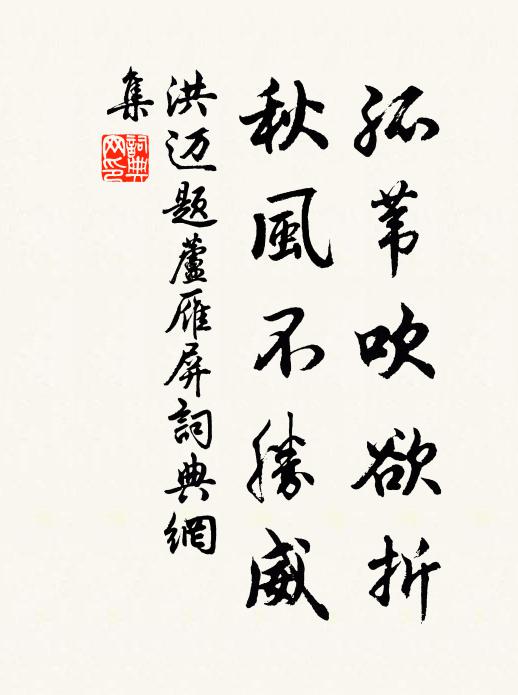 孤苇吹欲折
秋風不勝威
洪迈題蘆雁屏詞典網
集
詞典
网印